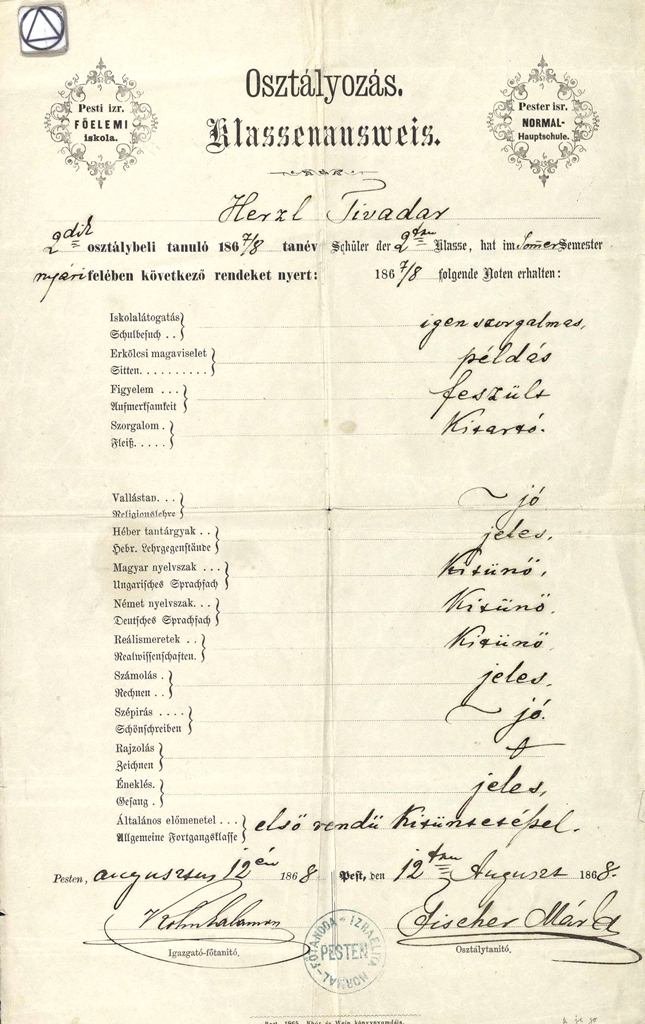 Pesti izr.
FŐELEMI
iskola.
Osztályozás.
Klassenausweis.
Pester isr.
NORMAL-
Hauptschule.
Herzl Tivadar
2dik osztálybeli tanuló 1867/8 tanév
nyári felében következő rendeket nyert:
Schüler der 2ten Klasse, hat im Somer Semester
1867/8 folgende Noten erhalten:
Iskolalátogatás
Schulbesuch . . igen szorgalmas,
Erkölcsi magaviselet
Sitten. . . . . . . . . . példás
Figyelem . . .
Aufmerksamkeit feszült
Szorgalom .
Fleiß. . . . . Kitartó.
Vallástan. . .
Religionslehre jó
Héber tantárgyak . .
Hebr. Lehrgegenstände jeles,
Magyar nyelvszak . . .
Ungarisches Sprachfach Kitünő,
Német nyelvszak. . .
Deutsches Sprachfach Kitünő,
Reálismeretek . .
Realwissenschaften. Kitünő,
Számolás .
Rechnen . . jeles,
Szépirás . . . .
Schönschreiben jó.
Rajzolás
Zeichnen
Éneklés.
Gesang . jeles,
Általános előmenetel . . .
Allgemeine Fortgangsklasse első rendü Kitüntetéssel.
Pesten, augusztus 12én 1868
Pest, den 12ten August 1868.
Igazgató-főtanító.
Fischer Mór
Osztálytanító.
IZRAELITA
NORMAL-FŐTANODA
PESTEN